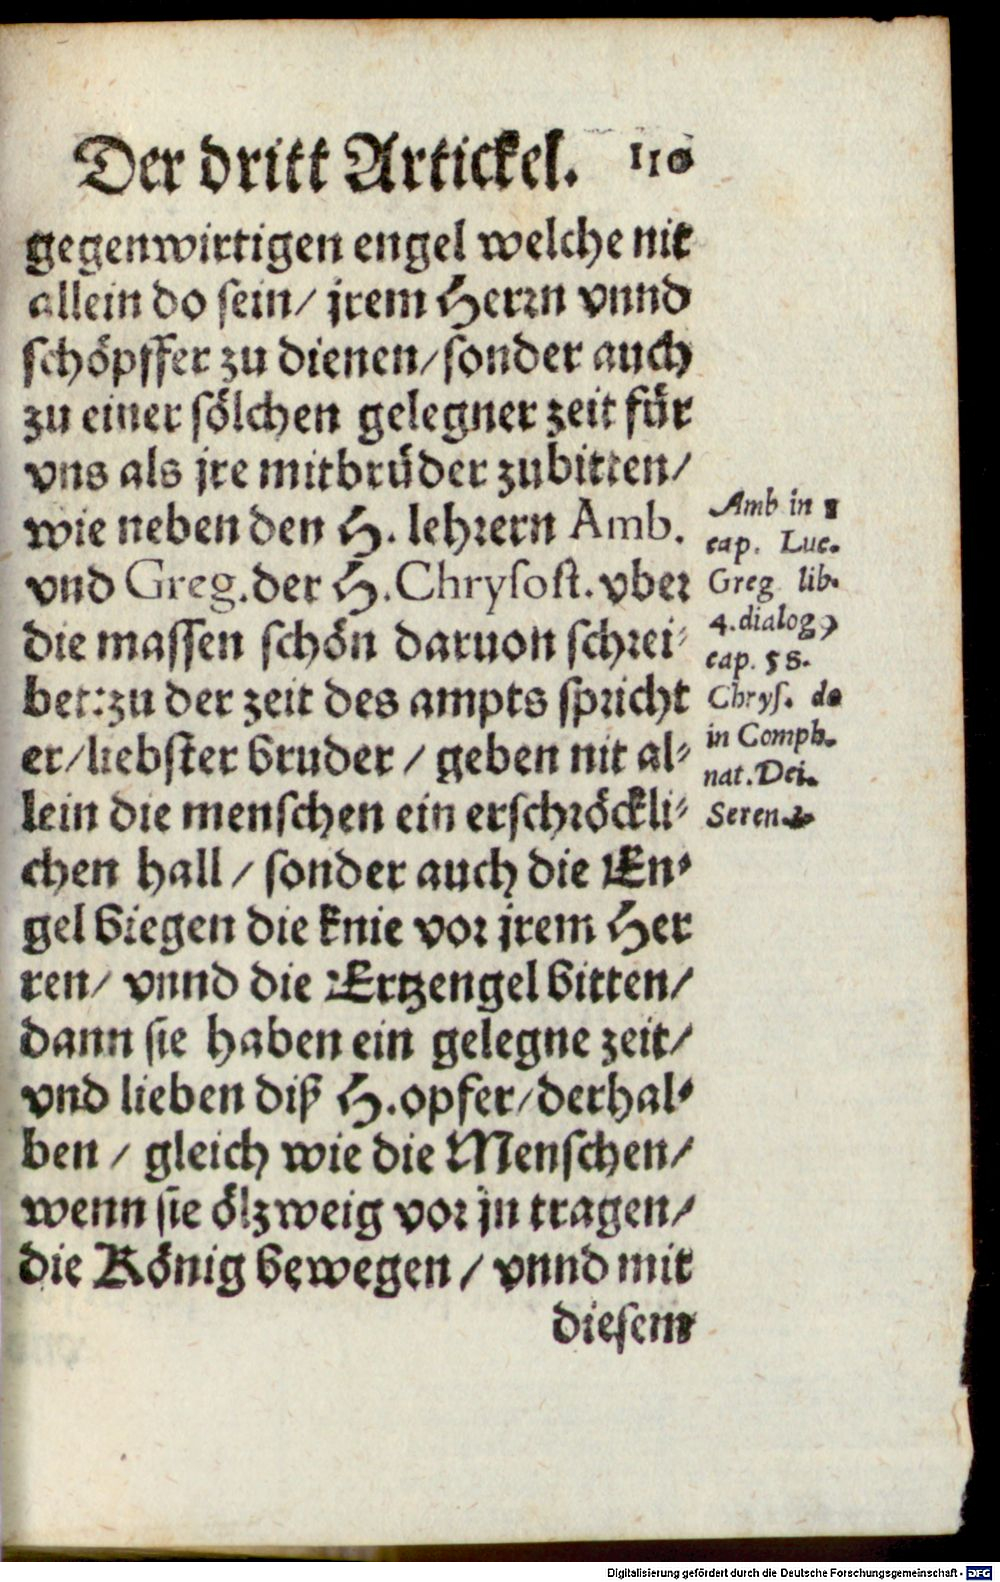 Der dritt Artickel. 110
gegenwirtigen engel welche nit
allein do sein/ jrem Herrn vnnd
schöpffer zu dienen/sonder auch
zu einer sölchen gelegner zeit für
vns als jre mitbrüder zubitten/
wie neben den H. lehrern Amb.
vnd Greg.der H.Chrysost.vber
die massen schön daruon schrei-
bet:zu der zeit des ampts spricht
er/liebster bruder / geben nit al-
lein die menschen ein erschröckli-
chen hall / sonder auch die En-
gel biegen die knie vor jrem Her
ren/ vnnd die Ertzengel bitten/
dann sie haben ein gelegne zeit/
vnd lieben diß H.opfer/derhal-
ben / gleich wie die Menschen/
wenn sie ölzweig vor jn tragen/
die König bewegen / vnnd mit
diesem
Amb in 1
cap. Luc.
Greg lib.
4.dialog
cap. 58.
Chrys. de
in Comph.
nat.Dei.
Seren.
Digitalisierung gefördert durch die Deutsche Forschungsgemeinschaft - DFG